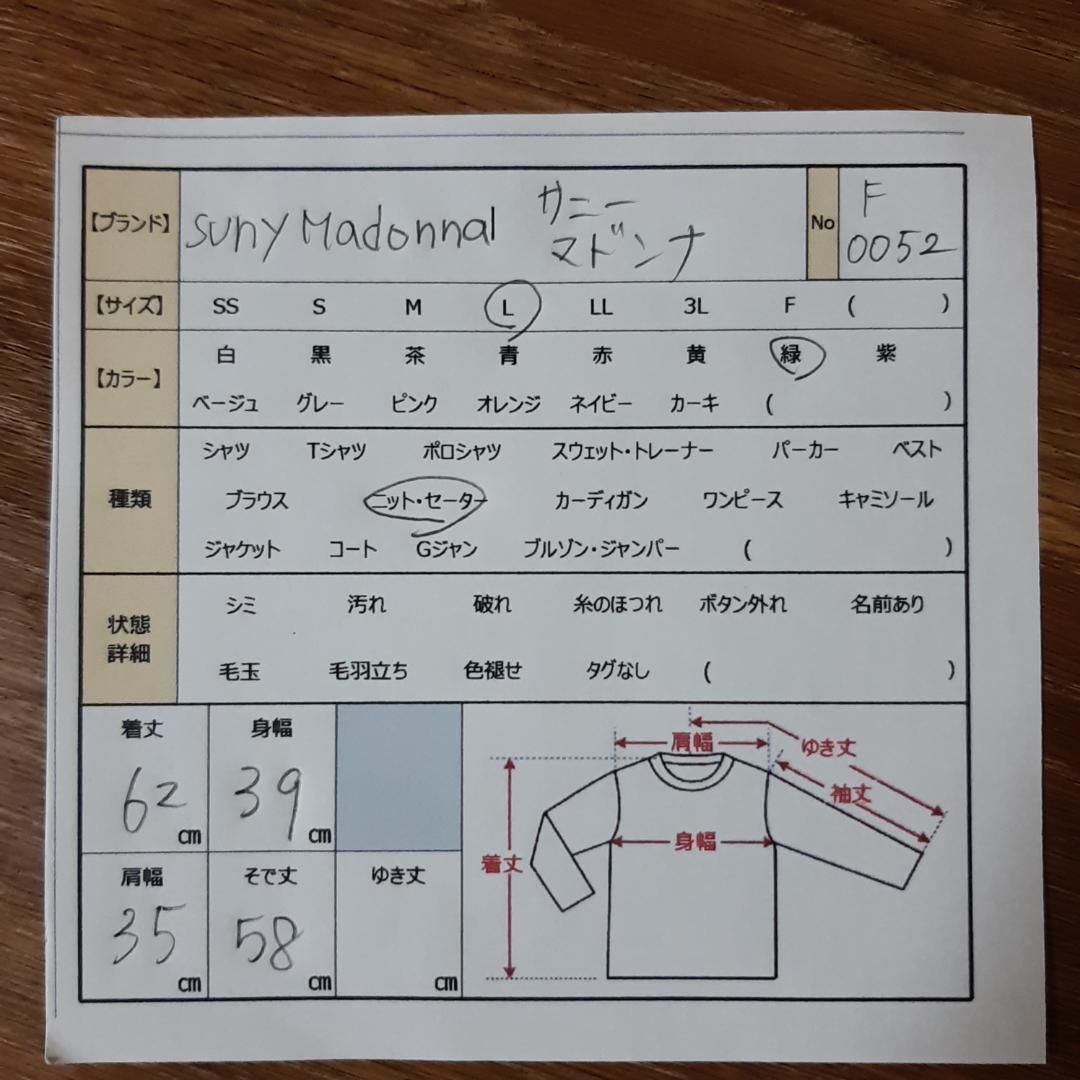 【ブランド】 suny Madonnal サニー マドンナ No F 0052
【サイズ】 SS S M L LL 3L F ( )
【カラー】 白 黒 茶 青 赤 黄 緑 紫
ベージュ グレー ピンク オレンジ ネイビー カーキ ( )
種類 シャツ Tシャツ ポロシャツ スウェット・トレーナー パーカー ベスト
ブラウス ニット・セーター カーディガン ワンピース キャミソール
ジャケット コート Gジャン ブルゾン・ジャンパー ( )
状態詳細 シミ 汚れ 破れ 糸のほつれ ボタン外れ 名前あり
毛玉 毛羽立ち 色褪せ タグなし ( )
着丈 身幅
62 cm 39 cm
肩幅 そで丈 ゆき丈
35 cm 58 cm cm
肩幅 ゆき丈
袖丈
身幅
着丈